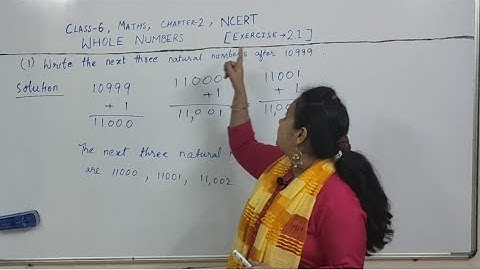 CLASS-6, MATHS, CHAPTER-2, NCERT
WHOLE NUMBERS [EXERCISE→2.1]
(1) Write the next three natural numbers after 10999.
Solution 10999 11000 11001
+ 1 +1 + 1
11000 11,001 11,002
The next three natural
are 11000, 11001, 11,002